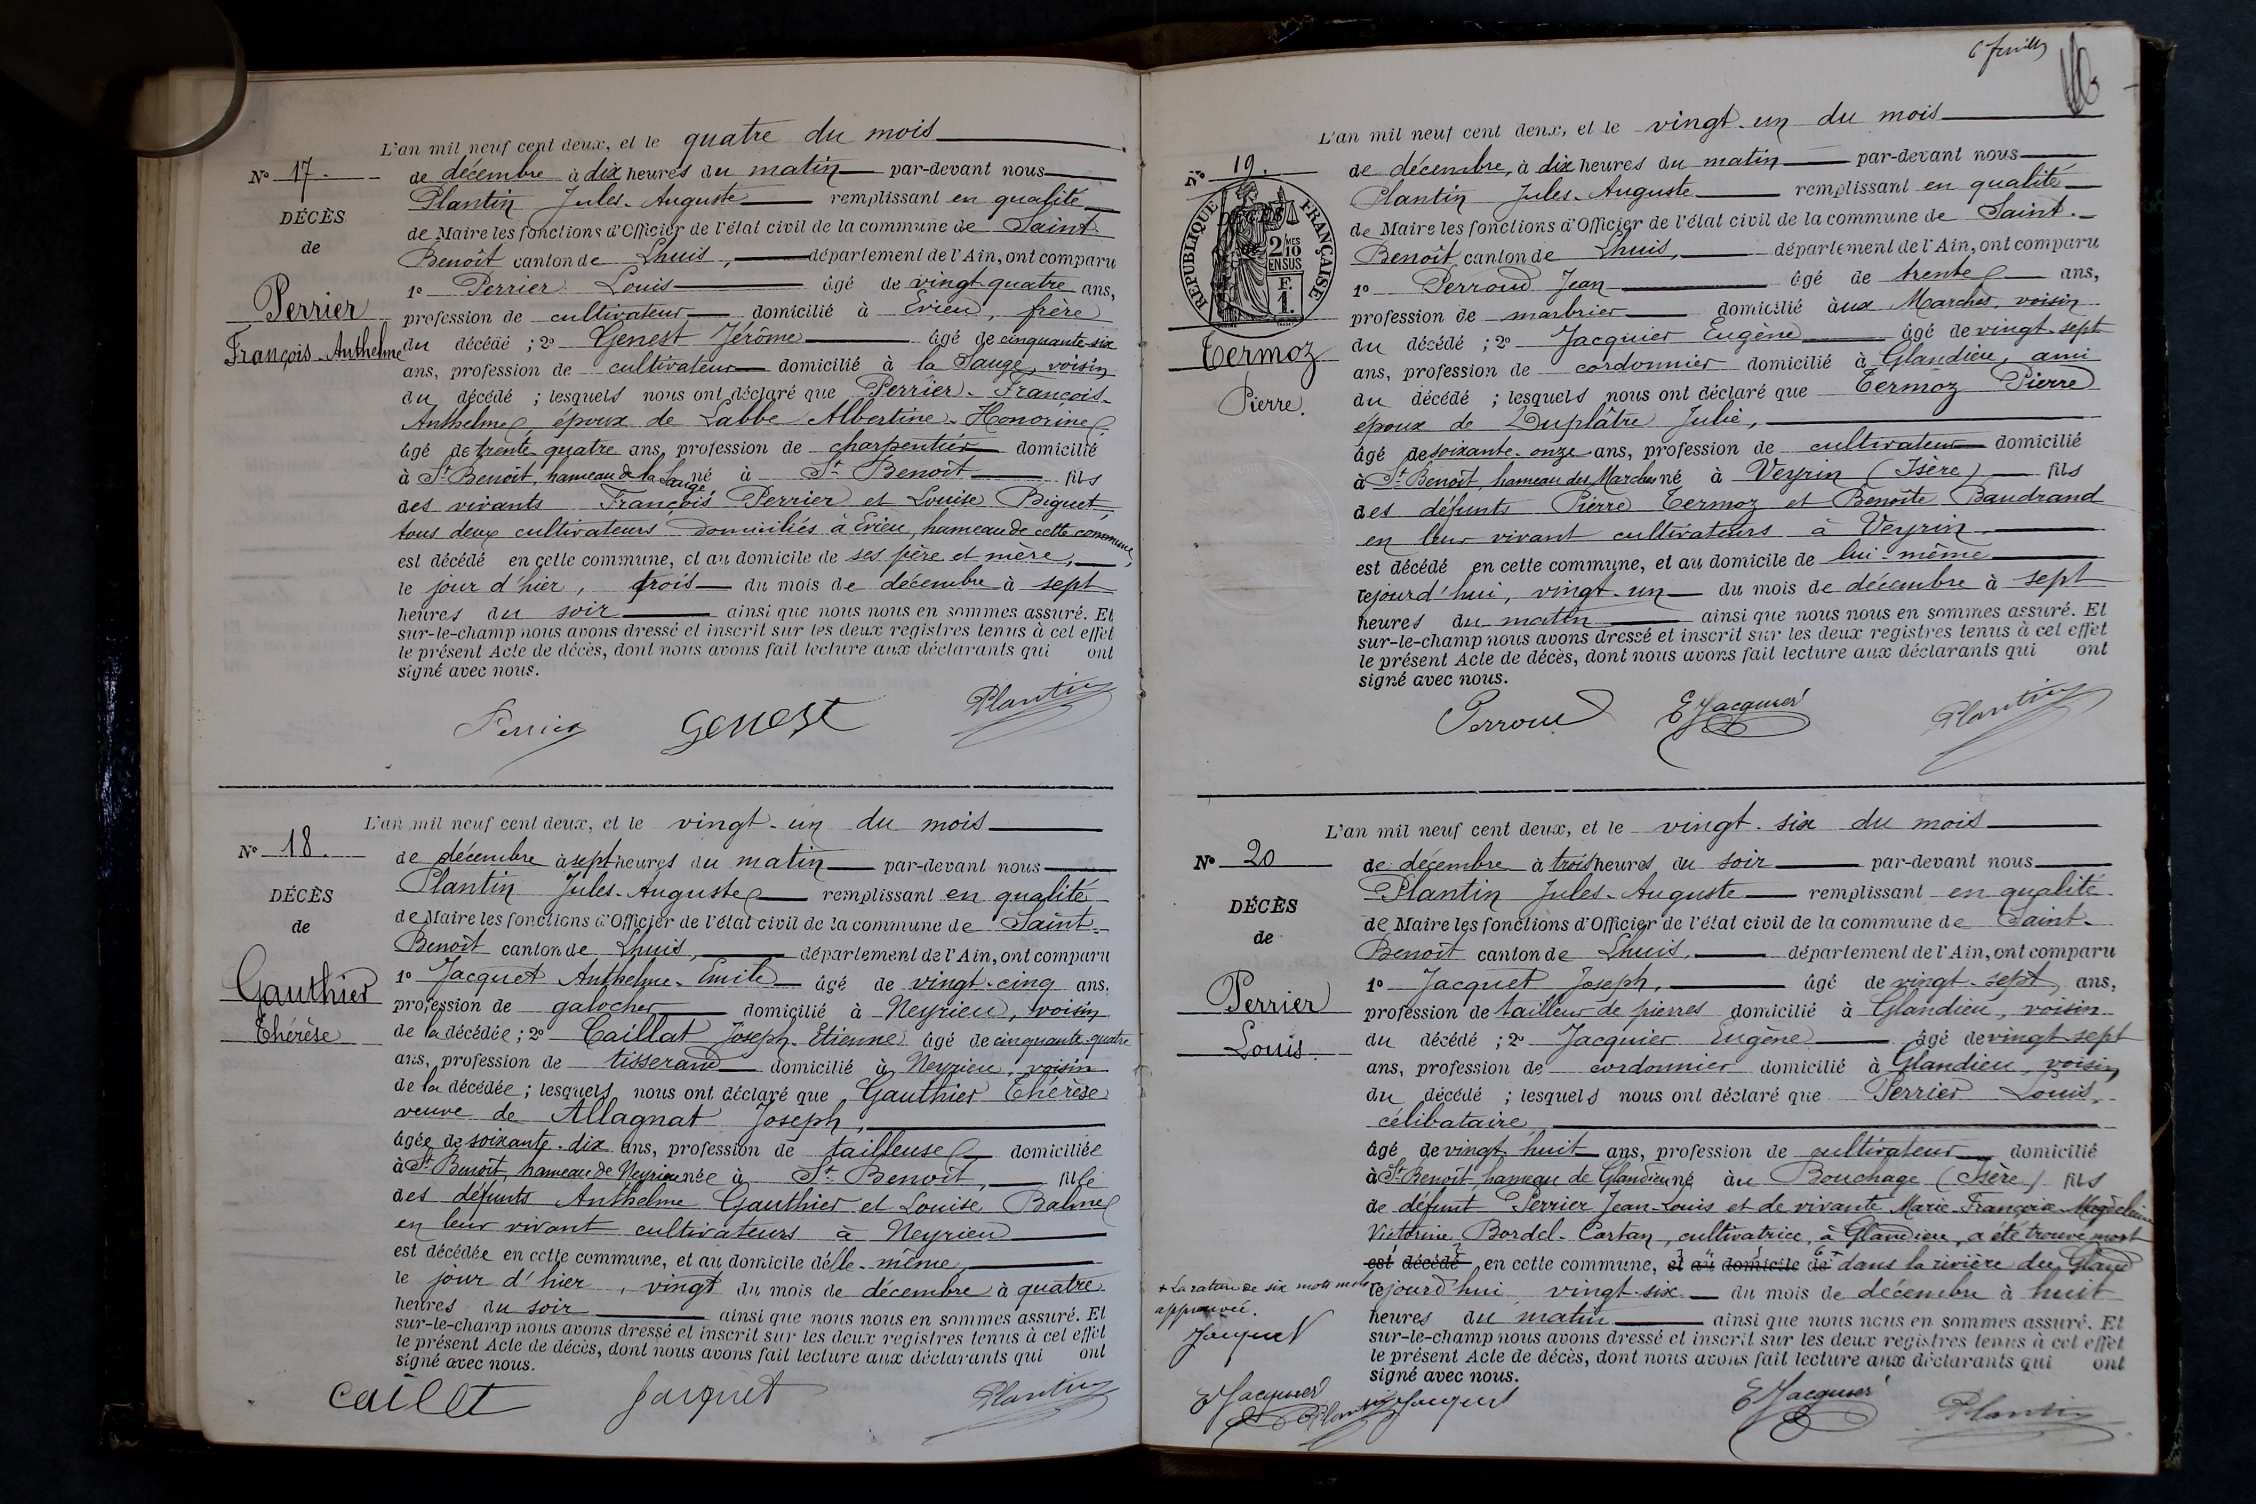 L'an mil neuf cent deux, et le quatre du mois
No 17.
de décembre à dix heures du matin par-devant nous
Plantin Jules-Auguste remplissant en qualité
DÉCÈS
de Maire les fonctions d'Officier de l'état civil de la commune de Saint-
de
Benoît canton de Lhuis, département de l'Ain, ont comparu
1o Perrier Louis âgé de vingt-quatre ans,
Perrier
profession de cultivateur domicilié à Evieu, frère
François-Anthelme
du décédé ; 2o Genest Jérôme âgé de cinquante-six
ans, profession de cultivateur domicilié à la Sauge, voisin
du décédé ; lesquels nous ont déclaré que Perrier-François-
Anthelme, époux de Labbe Albertine-Honorine,
âgé de trente quatre ans, profession de charpentier domicilié
à St Benoît, hameau de la Sauge né à St Benoît fils
des vivants François Perrier et Louise Biguet,
tous deux cultivateurs domiciliés à Evieu, hameau de cette commune,
est décédé en cette commune, et au domicile de ses père et mère,
le jour d'hier, trois du mois de décembre à sept
heures du soir ainsi que nous nous en sommes assuré. Et
sur-le-champ nous avons dressé et inscrit sur les deux registres tenus à cet effet
le présent Acte de décès, dont nous avons fait lecture aux déclarants qui ont
signé avec nous.
Perrier Genest Plantin
L'an mil neuf cent deux, et le vingt-un du mois
No 18.
de décembre à sept heures du matin par-devant nous
Plantin Jules-Auguste remplissant en qualité
DÉCÈS
de Maire les fonctions d'Officier de l'état civil de la commune de Saint-
de
Benoît canton de Lhuis, département de l'Ain, ont comparu
1o Jacquet Anthelme-Emile âgé de vingt-cinq ans,
Gauthier
profession de galocher domicilié à Neyrieu, voisin
Thérèse
de la décédée ; 2o Caillat Joseph-Etienne âgé de cinquante-quatre
ans, profession de tisserand domicilié à Neyrieu, voisin
de la décédée ; lesquels nous ont déclaré que Gauthier Thérèse
veuve de Allagnat Joseph,
âgée de soixante-dix ans, profession de tailleuse domiciliée
à St Benoît, hameau de Neyrieu née à St Benoît, fille
des défunts Anthelme Gauthier et Louise Balme
en leur vivant cultivateurs à Neyrieu
est décédée en cette commune, et au domicile d'elle-même,
le jour d'hier, vingt du mois de décembre à quatre
heures du soir ainsi que nous nous en sommes assuré. Et
sur-le-champ nous avons dressé et inscrit sur les deux registres tenus à cet effet
le présent Acte de décès, dont nous avons fait lecture aux déclarants qui ont
signé avec nous.
Caillt Jacquet Plantin
6 feuille
L'an mil neuf cent deux, et le vingt-un du mois
No 19.
de décembre, à dix heures du matin par-devant nous
Plantin Jules-Auguste remplissant en qualité
DÉCÈS
RÉPUBLIQUE FRANÇAISE
2 MES 10 EN SUS
F. 1.
de Maire les fonctions d'Officier de l'état civil de la commune de Saint-
Benoît canton de Lhuis, département de l'Ain, ont comparu
1o Perroud Jean âgé de trente ans,
profession de marbrier domicilié aux Marches, voisin
Termoz
du décédé ; 2o Jacquier Eugène âgé de vingt-sept
ans, profession de cordonnier domicilié à Glandieu, ami
Pierre.
du décédé ; lesquels nous ont déclaré que Termoz Pierre
époux de Duplâtre Julie,
âgé de soixante-onze ans, profession de cultivateur domicilié
à St Benoît, hameau des Marches né à Veyrin (Isère) fils
des défunts Pierre Termoz et Benoîte Baudrand
en leur vivant cultivateurs à Veyrin
est décédé en cette commune, et au domicile de lui-même
cejourd'hui, vingt-un du mois de décembre à sept
heures du matin ainsi que nous nous en sommes assuré. Et
sur-le-champ nous avons dressé et inscrit sur les deux registres tenus à cet effet
le présent Acte de décès, dont nous avons fait lecture aux déclarants qui ont
signé avec nous.
Perroud E Jacquier Plantin
L'an mil neuf cent deux, et le vingt-six du mois
No 20
de décembre à trois heures du soir par-devant nous
Plantin Jules-Auguste remplissant en qualité
DÉCÈS
de Maire les fonctions d'Officier de l'état civil de la commune de Saint-
de
Benoît canton de Lhuis, département de l'Ain, ont comparu
1o Jacquet Joseph, âgé de vingt-sept ans,
Perrier
profession de tailleur de pierres domicilié à Glandieu, voisin
Louis.
du décédé ; 2o Jacquier Eugène âgé de vingt-sept
ans, profession de cordonnier domicilié à Glandieu, voisin
du décédé ; lesquels nous ont déclaré que Perrier Louis,
célibataire,
âgé de vingt huit ans, profession de cultivateur domicilié
à St Benoît hameau de Glandieu né au Bouchage (Isère) fils
de défunt Perrier Jean-Louis et de vivante Marie-Françoise-Magdeleine
Victorine Bordel-Cartan, cultivatrice, à Glandieu, a été trouvé mort
est décédé en cette commune, et au domicile de dans la rivière du Gland
+ La rature de six mots nuls approuvée.
cejourd'hui vingt-six du mois de décembre à huit
heures du matin ainsi que nous nous en sommes assuré. Et
sur-le-champ nous avons dressé et inscrit sur les deux registres tenus à cet effet
Jacquet
le présent Acte de décès, dont nous avons fait lecture aux déclarants qui ont
signé avec nous.
E Jacquier Plantin Jacquet E Jacquier Plantin